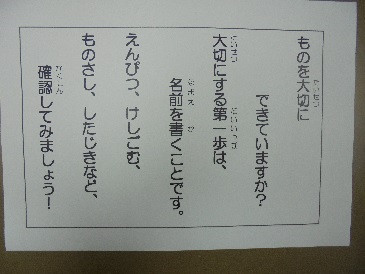 ものを大切に
できていますか？
大切にする第一歩は、
名前を書くことです。
えんぴつ、けしごむ、
ものさし、したじきなど、
確認してみましょう！